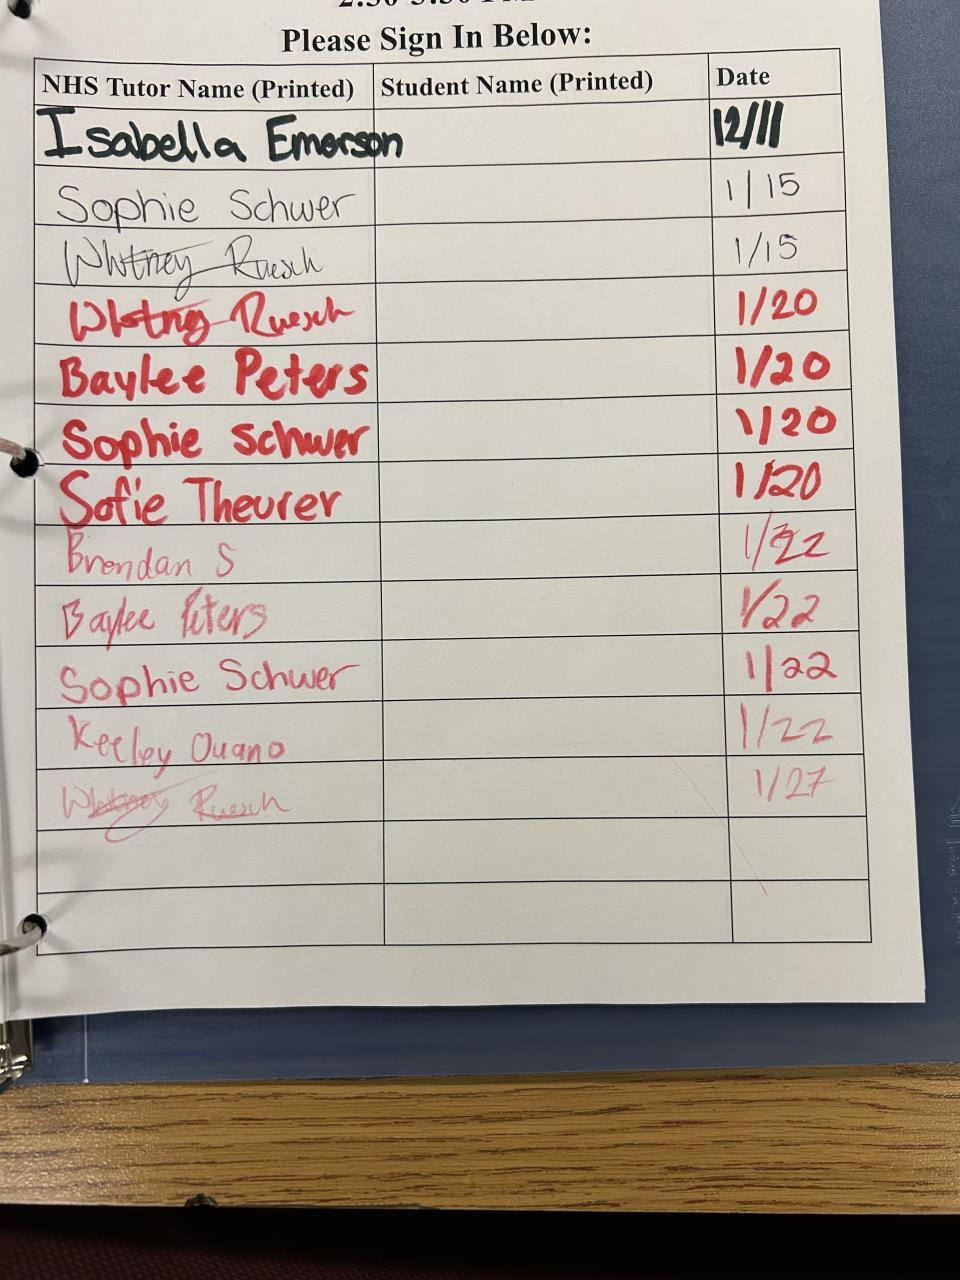 Please Sign In Below:
NHS Tutor Name (Printed) Student Name (Printed) Date
Isabella Emerson 12/11
Sophie Schwer 1/15
Whitney Ruesch 1/15
Whitney Ruesch 1/20
Baylee Peters 1/20
Sophie Schwer 1/20
Sofie Theurer 1/20
Brendan S 1/22
Baylee Peters 1/22
Sophie Schwer 1/22
Keeley Ouano 1/22
Whitney Ruesch 1/27